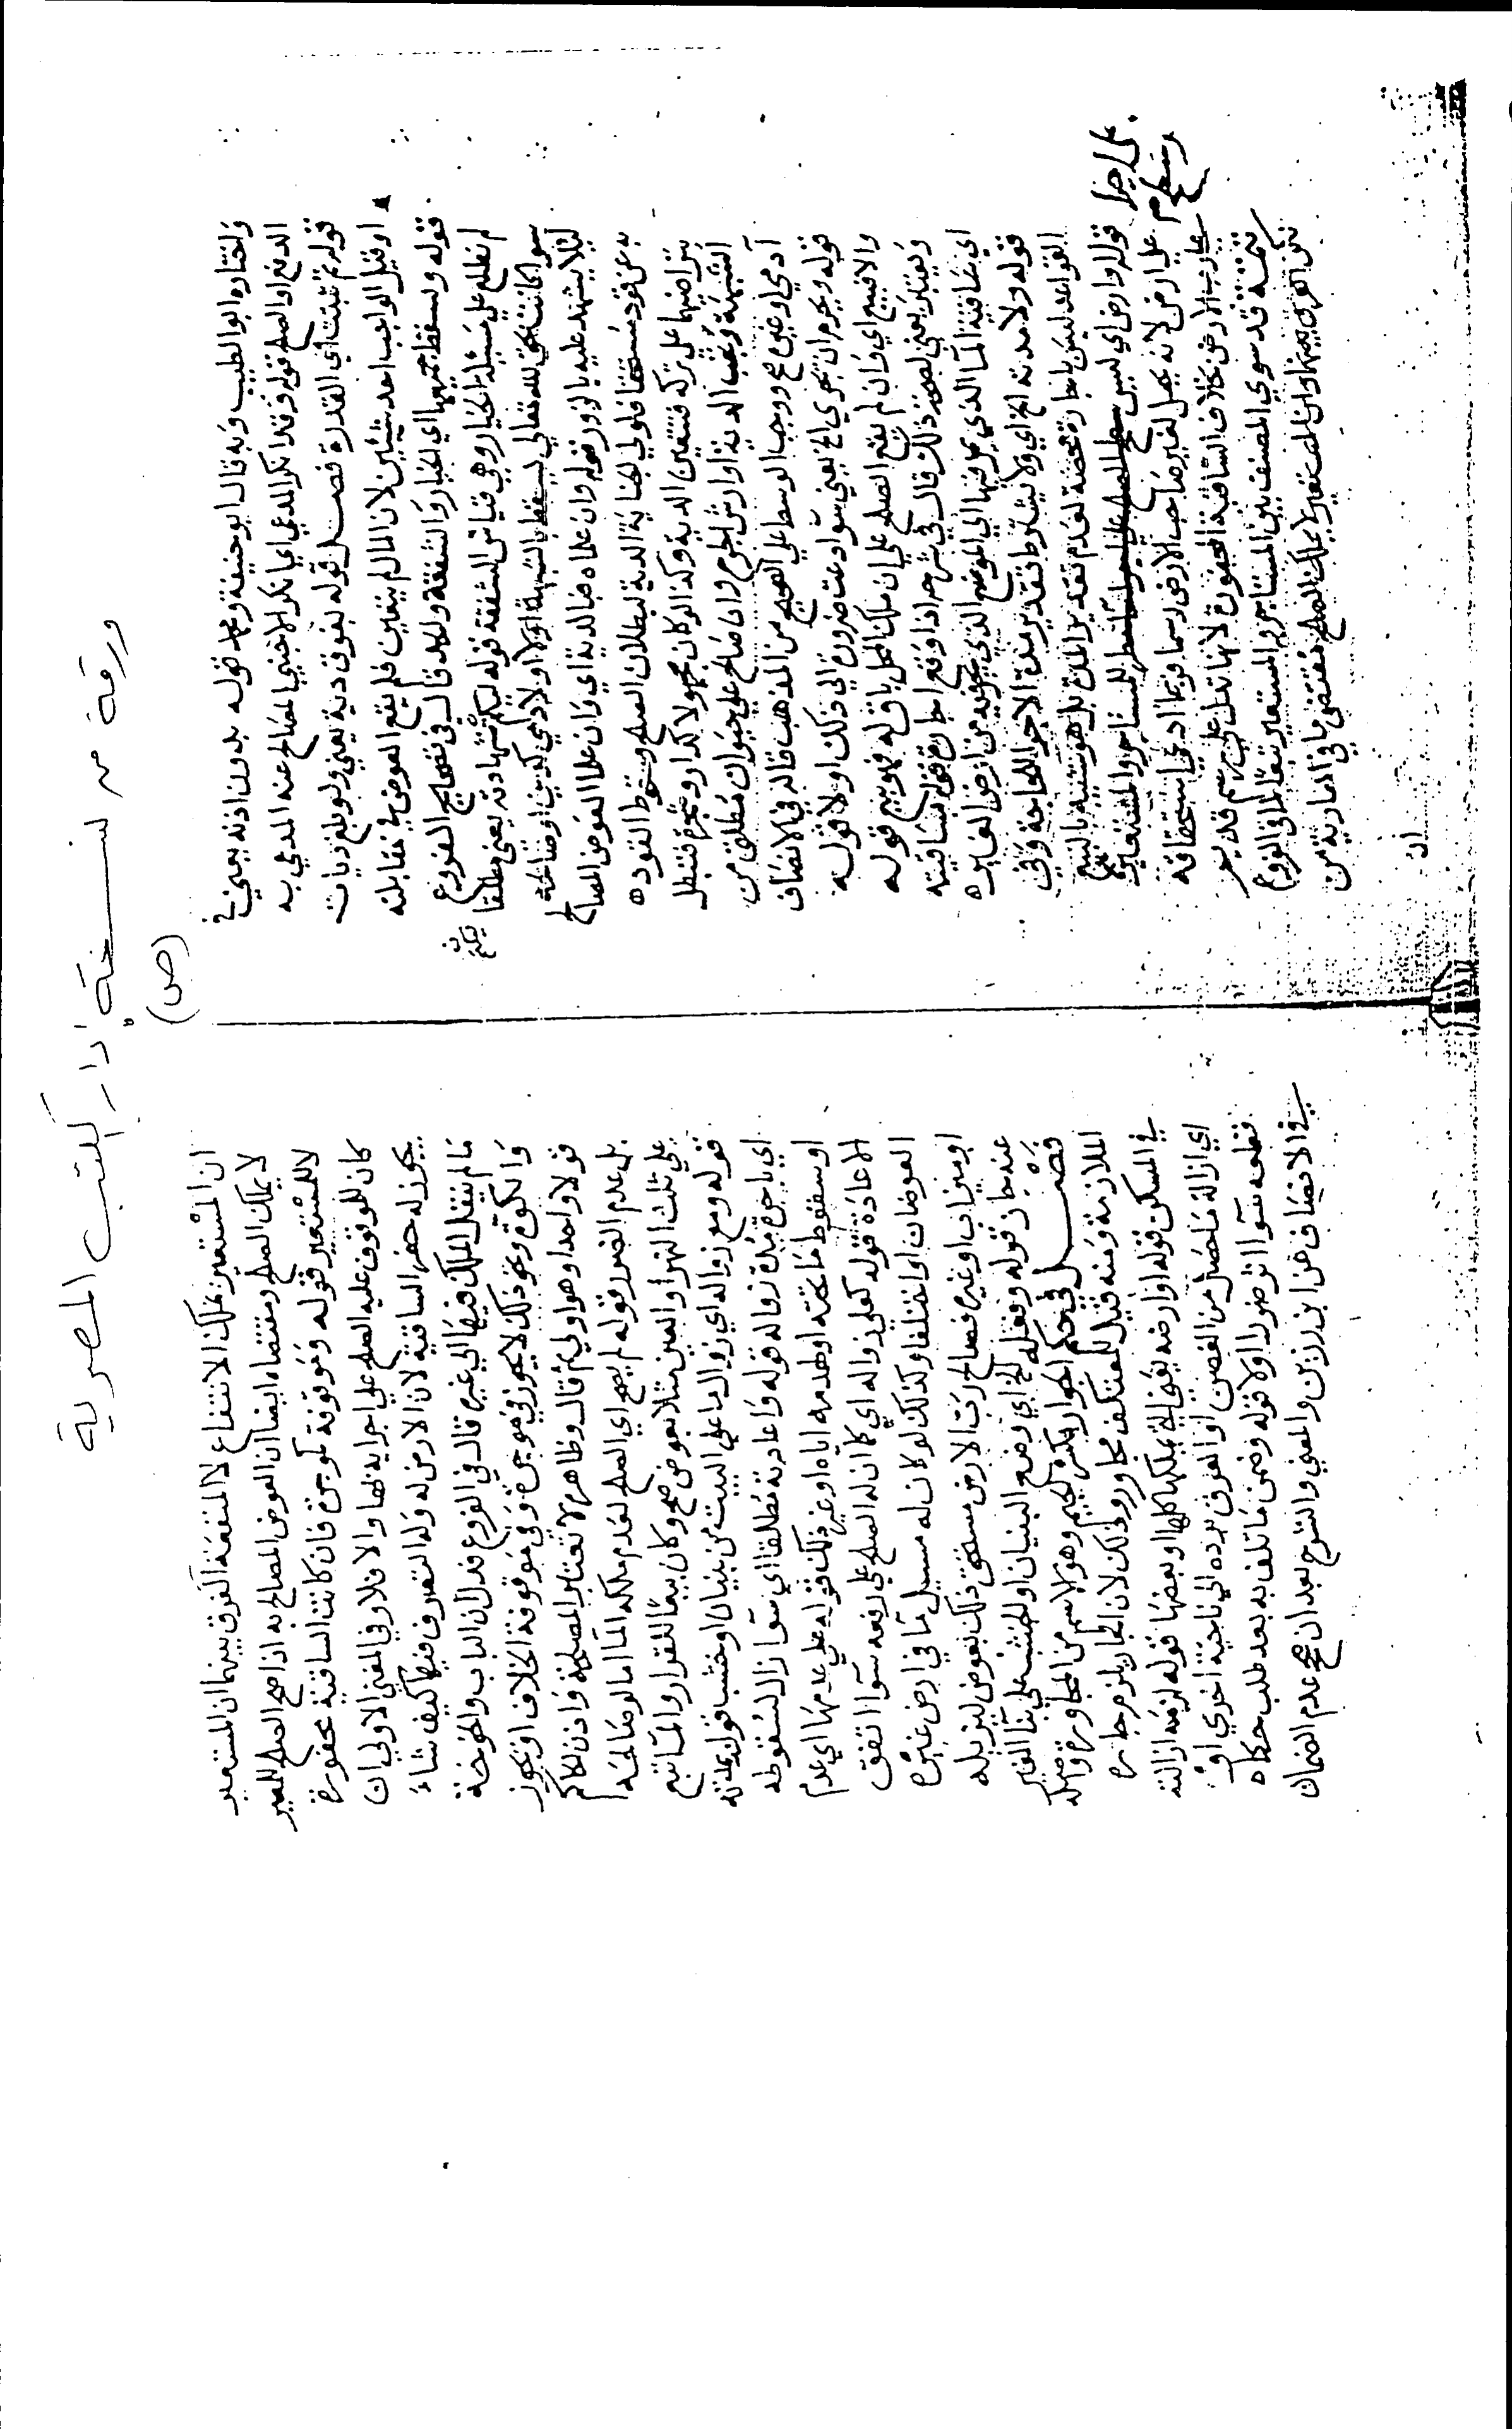 ورقة من نسخة دار الكتب المصرية
(ص)
واختاره ابو الطيب وبه قال ابو حنيفة ومحمد قوله بدون اذنه يعني في
الدفع او الصلح قوله وقد انكر المدعي اي انكر الاجنبي المصالح عنه المدعي به
قوله ثم تثبت اي القدرة فصل قوله بفوق دية يعني ولو بلغ ديات
او قيل الواجب احد شيئين لان المال لم يتعين فلم يقع العوض في مقابلته
قوله وتسقط جميعها اي الخيار والشفعة ولحد قال في تصحيح الفروع
لم نطلع على مسئلة الخيار وهي قياس الشفعة قوله ليكتم شهادته يعني مطلقا
يكتم
سوا كانت بحق لله تعالى يسقط بالشبهة او لا او لادمي كدين او صالحه
ليلا يشهد عليه بالزور قوله وان علماه فبالدية اي وان علما العوض المصالح
به عن قود مستحقا فلولي الجناية الدية لبطلان الصلح وسقوط القود ه
بتراضيهما على تركه فتتعين الدية وكذا لو كان مجهولا كدار وشجرة فتبطل
التسمية وتجب الدية او ارش الجرح وان صالح على حيوان مطلق من
آدمي او غيره صح ووجب الوسط على الصحيح من المذهب قاله في الانصاف
قوله ويحرم ان يجري الخ يعني سوا دعت ضرورة الى ذلك او لا قوله
والا فبيع اي وان لم يقع الصلح على ان ملك المحل باق له فهو بيع قوله
ويعتبر يعني لصحة ذلك قال في شرحه اذا وقع اجارة بساقيته
اي ساقية الما الذي يمر فيها الى الموضع الذي يجريه من ارض لغيره
قوله ولا مدته الخ اي ولا يشترط تقدير مدة الاجرا للحاجة وفي
القواعد ليس باجارة محضة لعدم تقدير المدة بل هو شبيه بالبيع
قوله وارض اي ليس للمستاجر والمستعير الصلح على اجراء ماء سطح
على ارض لانه يجعل لغير صاحب الارض رسما فربما ادعى استحقاقه
على رب الارض بخلاف الساقية المحفورة لانها تدل على رسم قديم
تتمة قد سوى المصنف بين المستاجر والمستعير تبعا لما في الفروع
نفي الفرق بينهما وان المستعير لا يملك الصلح مقتضى ما في العارية من
ان
ان المستعير يملك الانتفاع لا المنفعة الفرق بينهما وان المستعير
لا يملك الصلح ومقتضاه ايضا ان العوض المصالح به اذا صح الصلح للمعير
لا للمستعير قوله وموقوفة كموجرة فان كانت الساقية محفورة
كان للموقوف عليه الصلح على اجرايه لها والا فلا وفي المغني الاولى ان
يجوز له حفر الساقية لان الارض له وله التصرف فيها كيف شاء
ما لم ينتقل الملك فيها الى غيره قال في الفروع فدل ان الباب والخوخة
والكوة ونحو ذلك لا يجوز في موجرة وفي موقوفة الخلاف او يجوز
قولا واحدا وهو اولى ثم قال وظاهره لا تعتبر المصلحة واذن الحاكم
بل عدم الضرر قوله لم يصح اي الصلح لعدم ملكه الما اما لو صالحه
على ثلث النهر او العين مثلا بعوض صح وكان بيعا للقرار والما تبع
قوله ومع زواله اي زوال ما على البيت من بنيان او خشب قوله بمدته
اي باجرة مدة زواله قوله واعادته مطلقا اي سوا زال لسقوطه
او سقوط ما تحته او لهدمه اياه او غير ذلك قوله على عدمها اي عدم
الاعادة قوله كعلى زواله اي كما ان له الصلح على رفعه سوا اتفق
العوضان او اختلفا وكذلك لو كان له مسيل ما في ارض غيره
او ميزاب او غيره فصالح رب الارض مستحق ذلك بعوض ليزيله
عنه جاز قوله وفعله الخ اي وضع البنيان او الخشب على بناء الغير
فصل في حكم الجوار بكسر الجيم وهو الاسم من المجاورة واصله
الملازمة ومنه قيل للمعتكف مجاور وذلك لان الجار يلزم جاره
في المسكن قوله او ارضه يعني التي يملكها كلها او بعضها قوله لزمه ازالته
اي ازالة ما حصل من الغصن او العرق برده الى ناحية اخرى او
قطعه سوا اثر ضررا او لا قوله وضمن ما تلف به بعد طلب حكاه
في الانصاف عن ابن رزين والمغني والشرح بعد ان صحح عدم الضمان